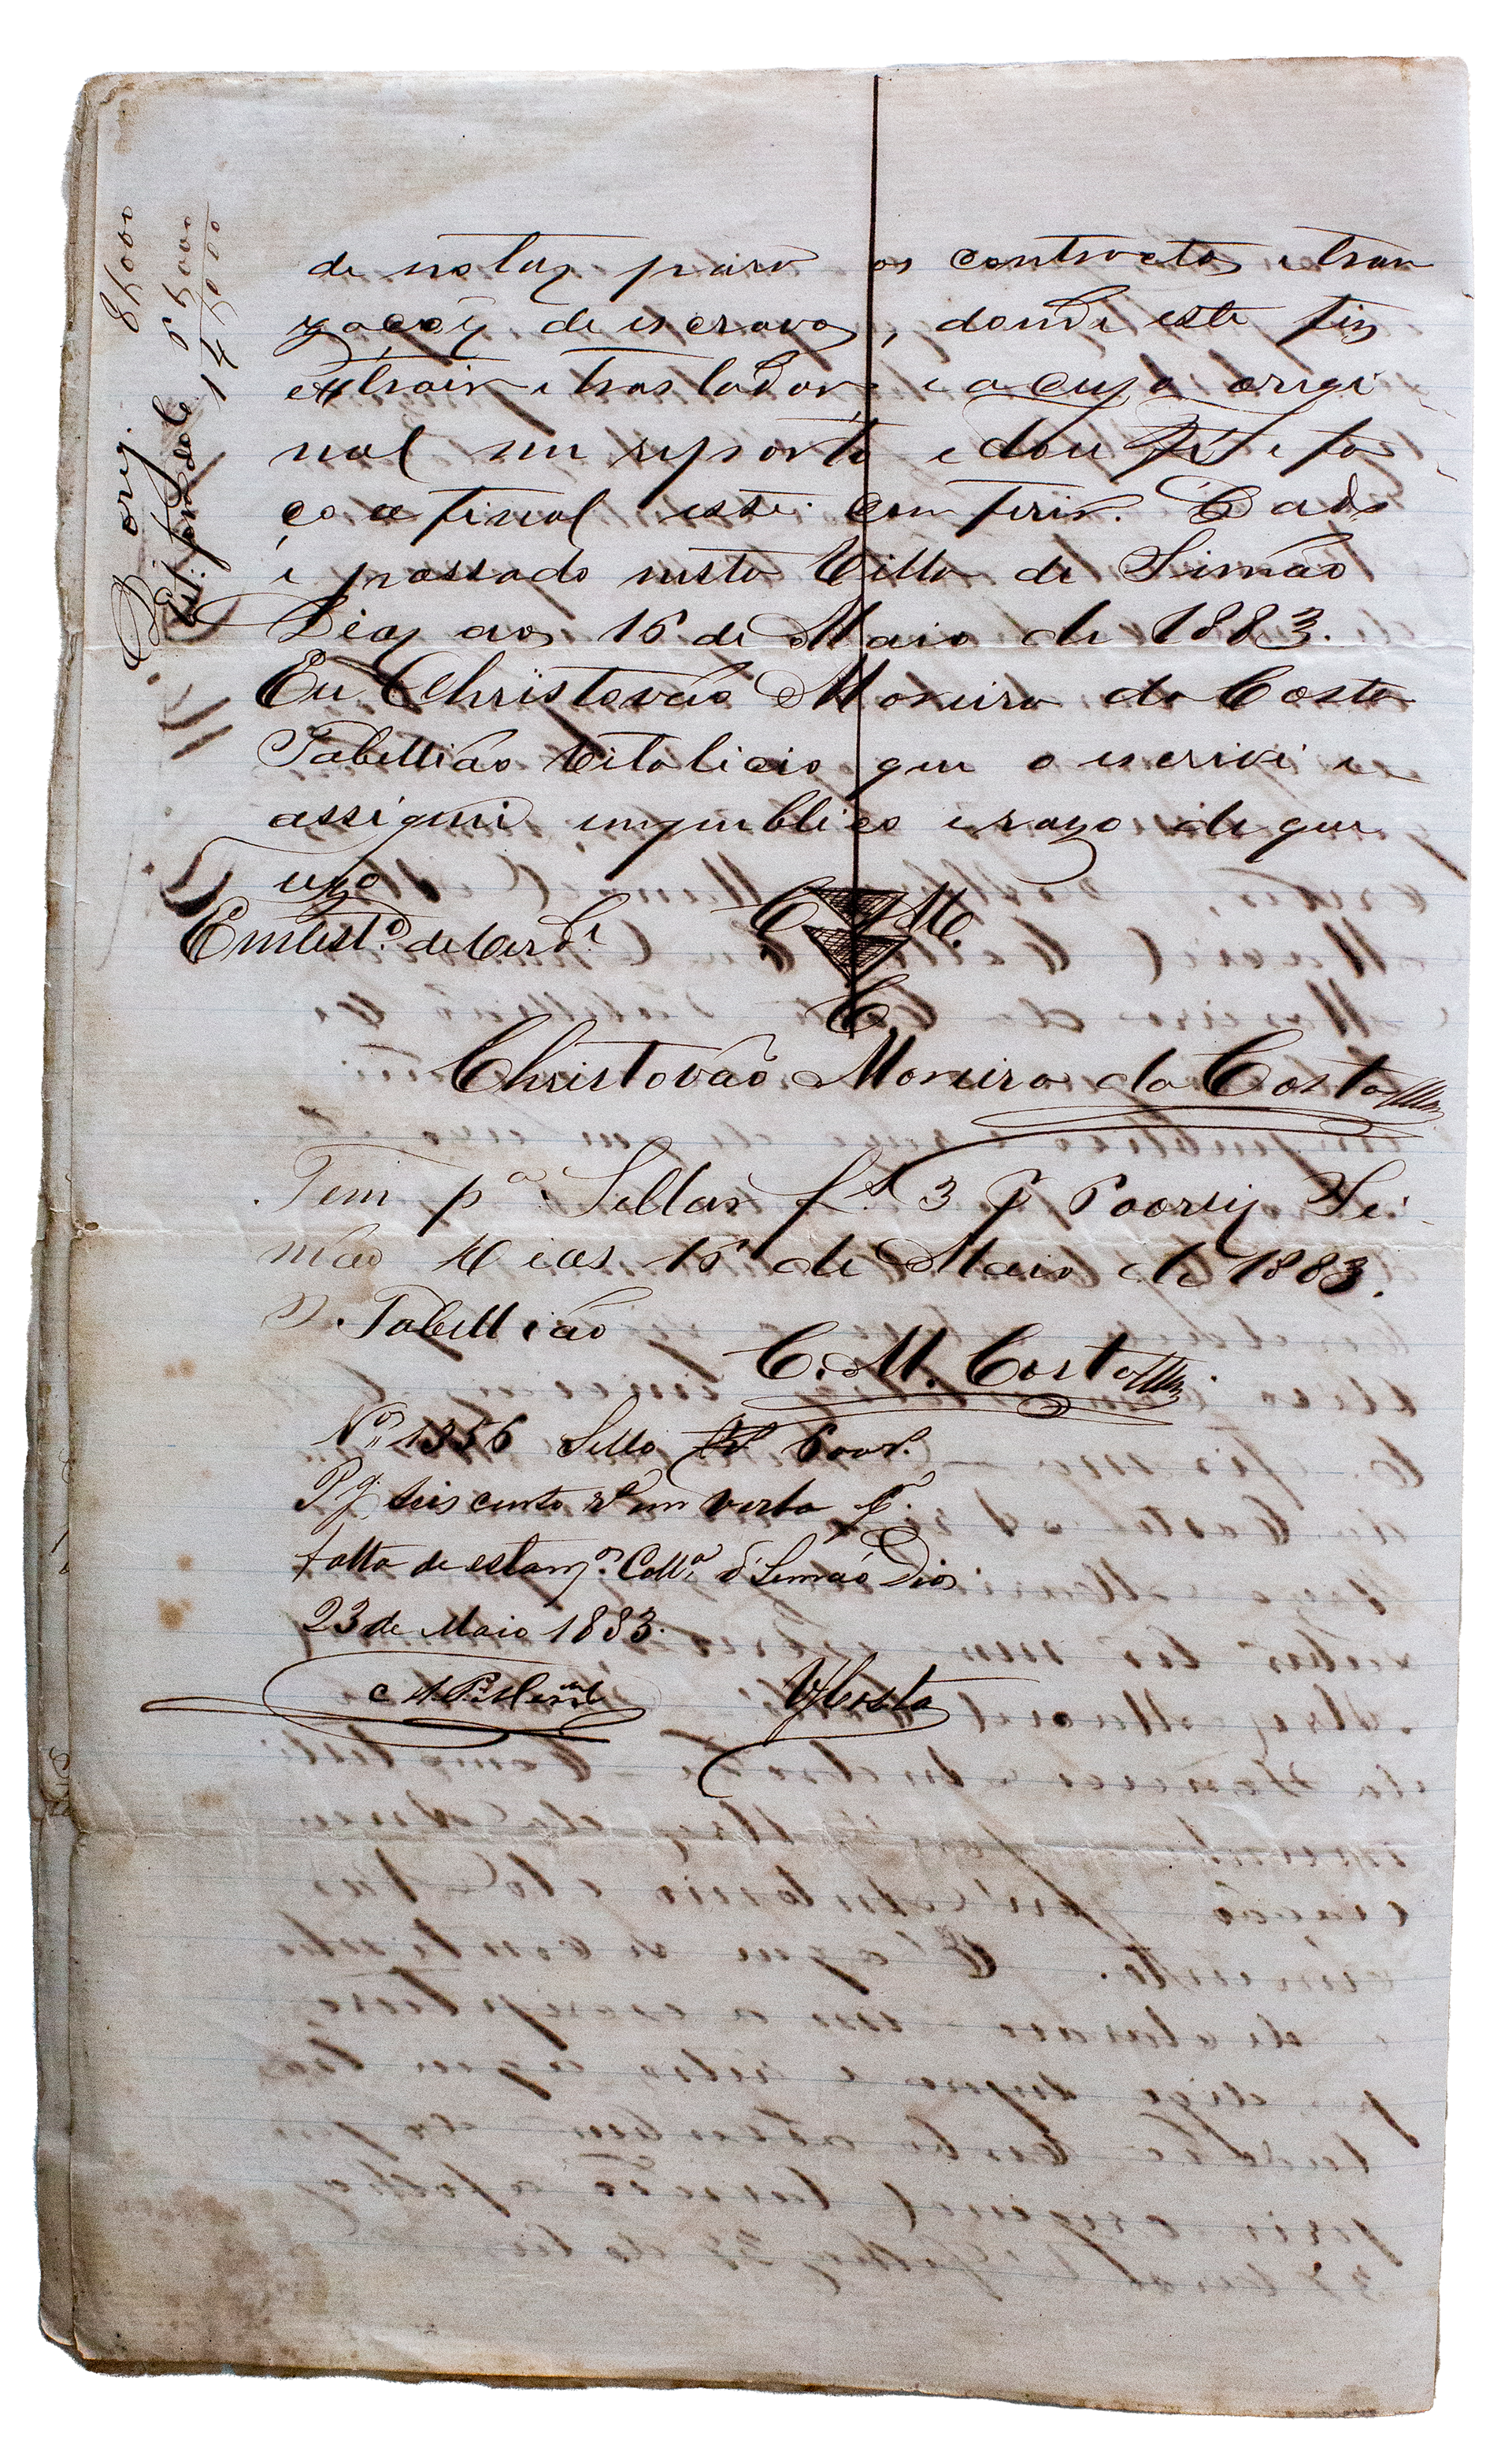 de notas para os contractos e tran
zações de escravos, donde este fiz
extrair e trasladar e a cujo origi
nal me reporto e dou fé e fa
ço a final este conferir. Dado
e passado nesta Villa de Simão
Dias aos 16 de Maio de 1883.
Eu Christovão Moreira da Costa
Tabellião Vitalicio que o escrivi e
assignei em publico e razo de que
uzo
Em test.º de verd.e C. M.
C.
Christovão Moreira da Costa
Tem p.a Sellar f.s 3 Si
mão Dias 16 de Maio de 1883.
O Tabellião
C. M. Costa
Nº 1356 Sello 600 r.
Pg. seis centos rs em verba p.
falta de estamp.as Coll.a d' Simão Dias
23 de Maio 1883.
Costa
8$000
14$000